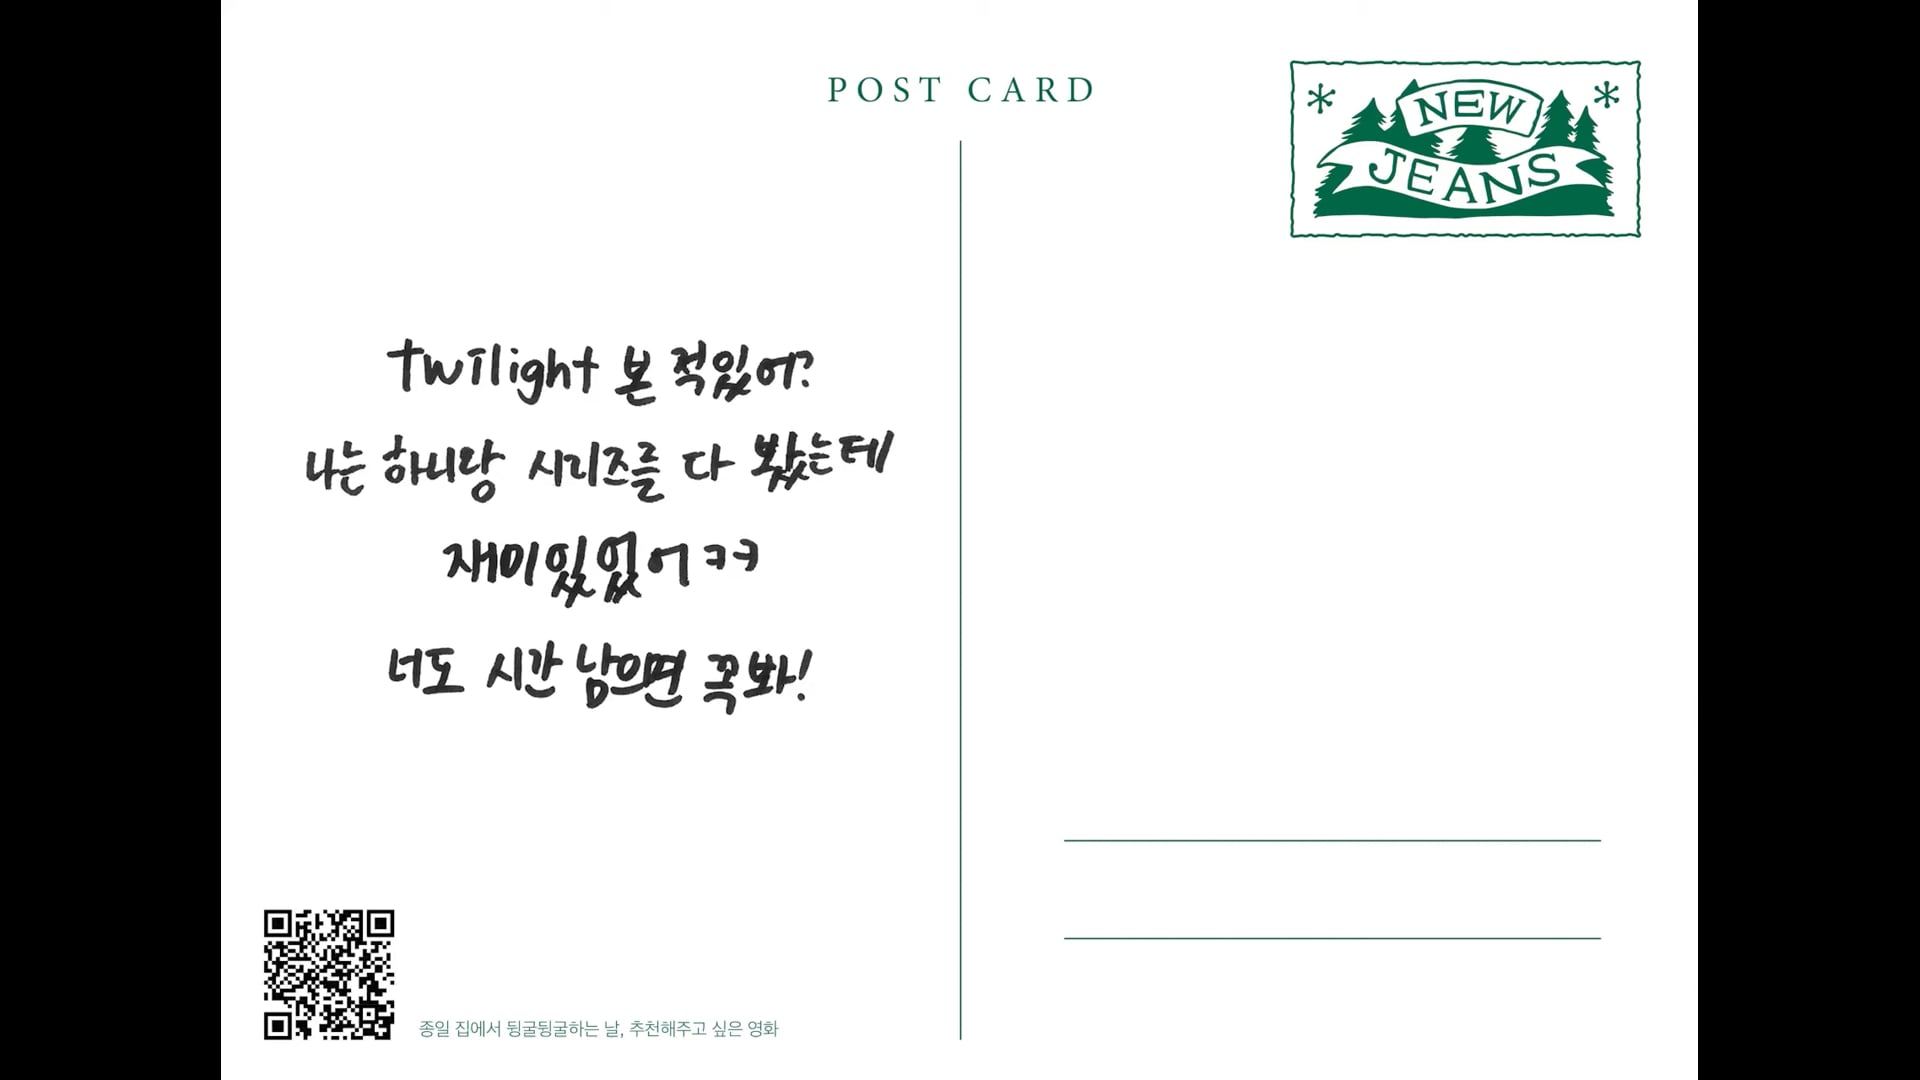 POST CARD
NEW
JEANS
twilight 본 적있어?
나는 하니랑 시리즈를 다 봤는데
재미있었어 ㅋㅋ
너도 시간 남으면 꼭봐!
종일 집에서 뒹굴뒹굴하는 날, 추천해주고 싶은 영화